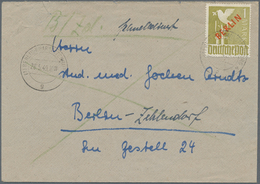 Einschreiben
BERLIN
Deutsche Post
Herrn
stud. med. Jochen Arndt
Berlin-Zehlendorf
Im Gestell 24